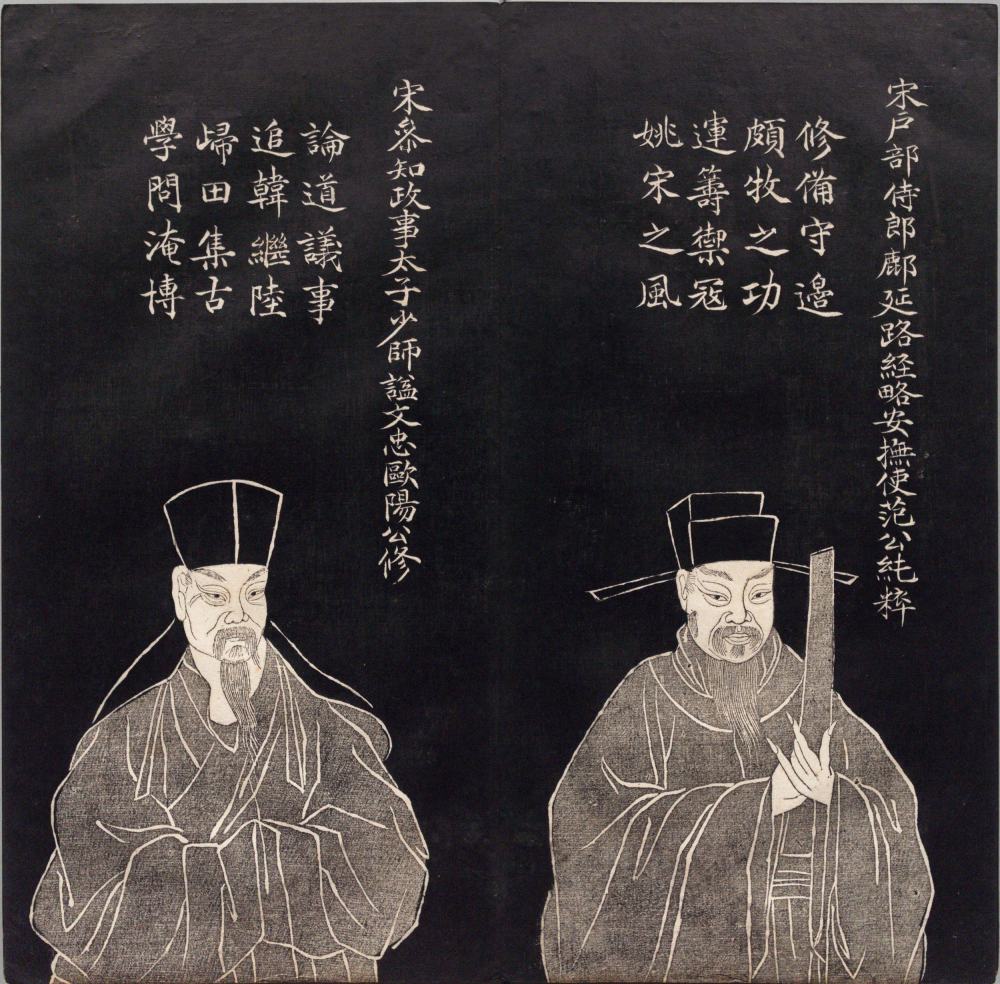 宋戶部侍郎鄜延路経略安撫使范公純粹
修備守邊
頗牧之功
運籌禦冦
姚宋之風
宋叅知政事太子少師諡文忠歐陽公修
論道議事
追韓繼陸
歸田集古
學問淹博